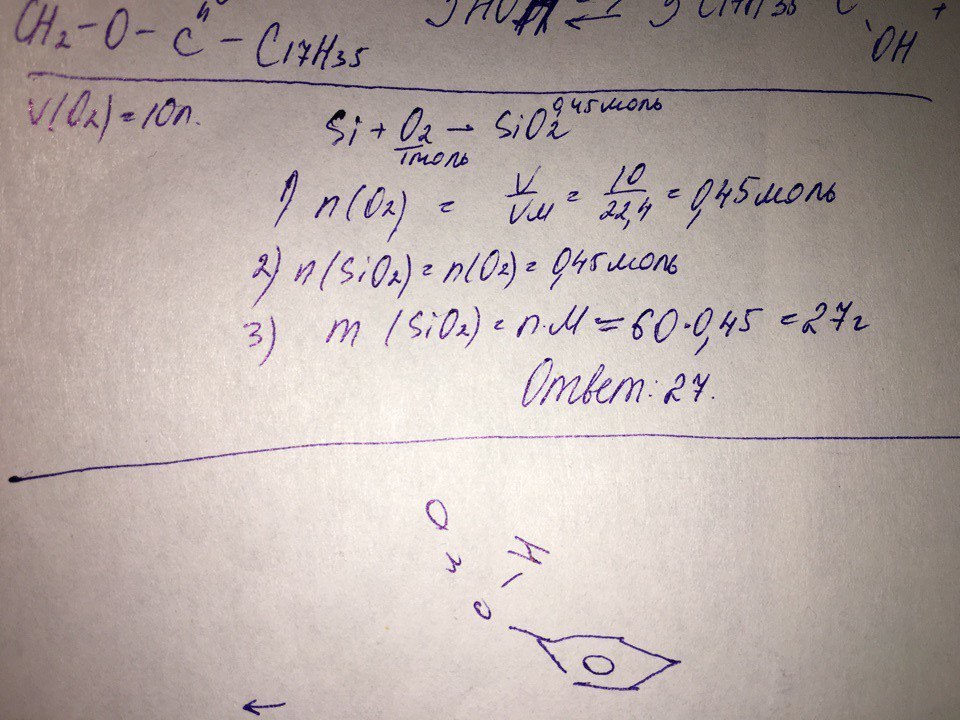 CH2-O-C-C17H35
OH
V(O2)=10л.
Si + O2 → SiO2 0,45моль
1моль
1) n(O2) = V/VM = 10/22,4 = 0,45моль
2) n(SiO2)=n(O2)=0,45моль
3) m (SiO2)= n·M = 60·0,45 = 27г
Ответ: 27.
O
H
C
O
←